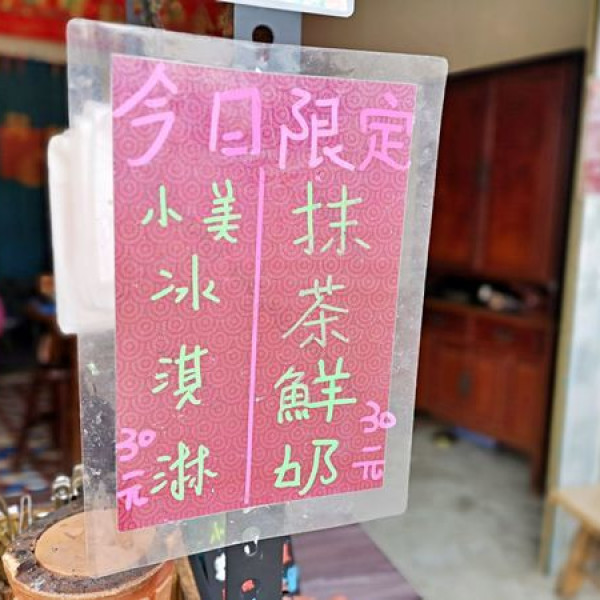 今日限定
抹茶鮮奶
30元
小美冰淇淋
30元